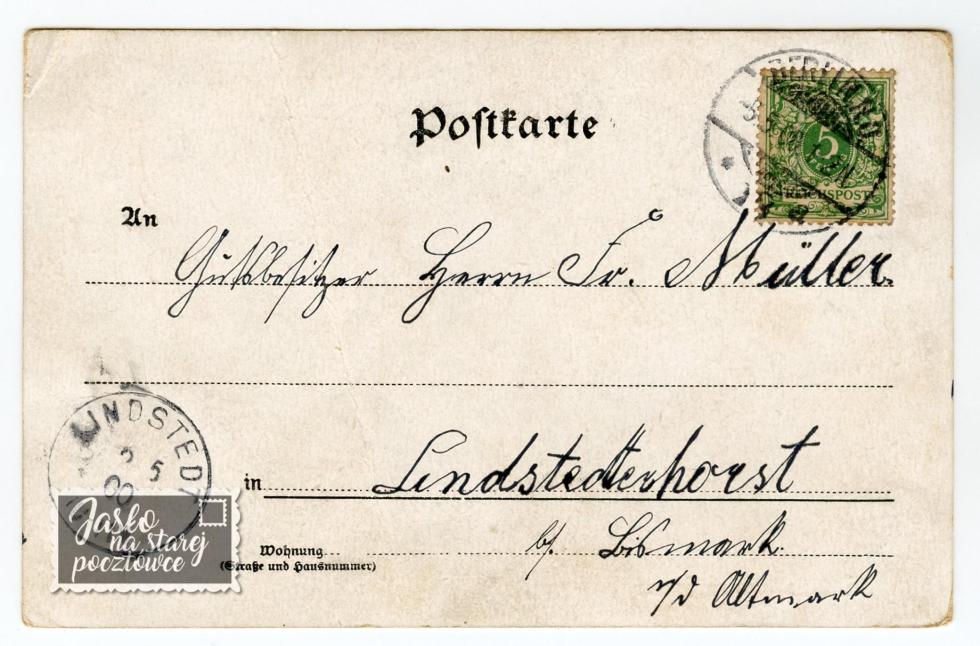 Postkarte
5
REICHSPOST
An
Gutsbesitzer Herrn Fr. Müller.
LINDSTEDT
5
00
in Lindstedterhorst
Wohnung
(Straße und Hausnummer)
b/ Bismark
Altmark
Jasło
na starej
pocztówce